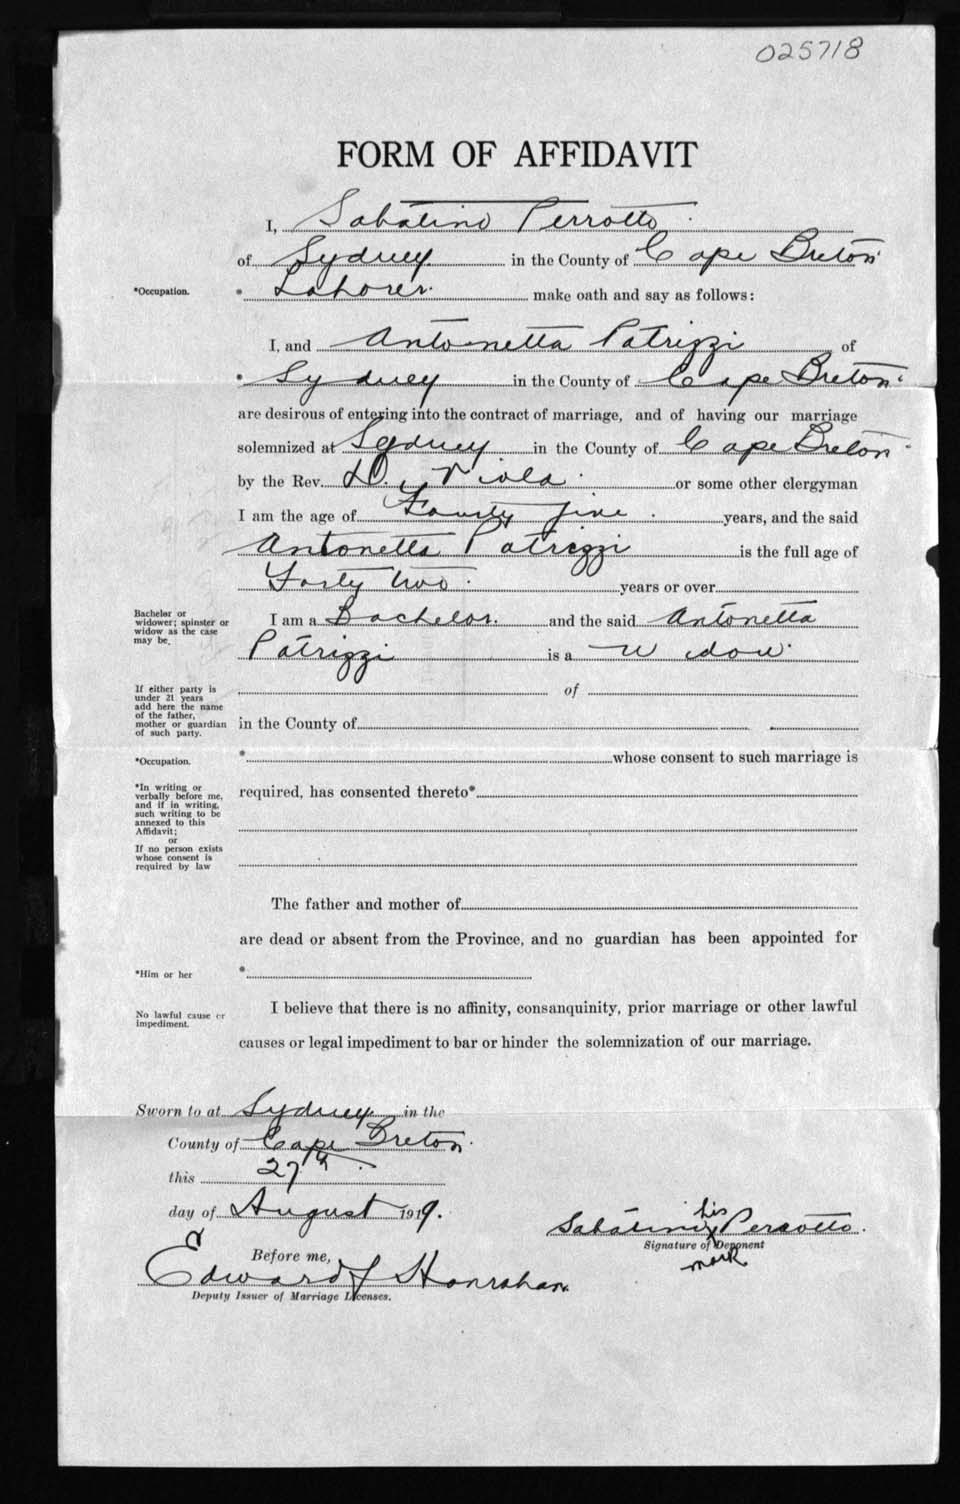 025718
FORM OF AFFIDAVIT
I, Sabatino Perrotto
of Sydney in the County of Cape Breton
*Occupation. * Laborer. make oath and say as follows:
I, and Antonetta Patrizzi of
* Sydney in the County of Cape Breton
are desirous of entering into the contract of marriage, and of having our marriage
solemnized at Sydney in the County of Cape Breton
by the Rev. D. Viola or some other clergyman
I am the age of Fourty five years, and the said
Antonetta Patrizzi is the full age of
Forty two years or over
Bachelor or
widower; spinster or
widow as the case
may be.
I am a Bachelor. and the said Antonetta
Patrizzi is a Widow
If either party is
under 21 years
add here the name
of the father,
mother or guardian
of such party.
of
in the County of
*Occupation. * whose consent to such marriage is
*In writing or
verbally before me,
and if in writing,
such writing to be
annexed to this
Affidavit;
or
If no person exists
whose consent is
required by law
required, has consented thereto*
The father and mother of
are dead or absent from the Province, and no guardian has been appointed for
*Him or her *
No lawful cause or
impediment.
I believe that there is no affinity, consanquinity, prior marriage or other lawful
causes or legal impediment to bar or hinder the solemnization of our marriage.
Sworn to at Sydney in the
County of Cape Breton
this 27th
day of August 1919.
his
Sabatino x Perrotto
Signature of Deponent
mark
Before me,
Edward J Hanrahan
Deputy Issuer of Marriage Licenses.